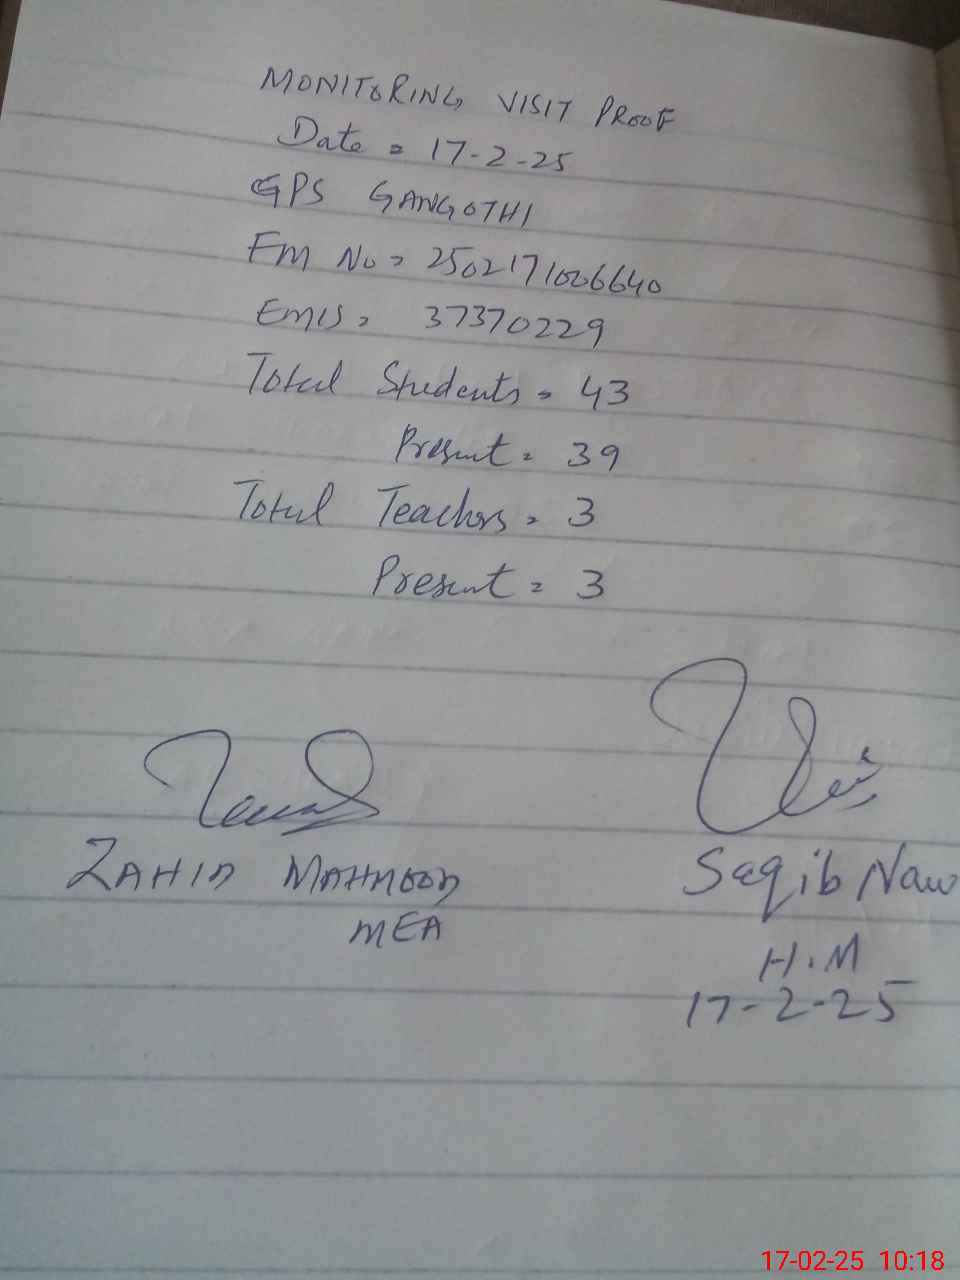 MONITORING VISIT PROOF
Date = 17-2-25
GPS GANGOTHI
FM No = 2502171006640
EMIS = 37370229
Total Students = 43
Present = 39
Total Teachers = 3
Present = 3
ZAHID MAHMOOD
MEA
Saqib Naw
H.M
17-2-25
17-02-25 10:18